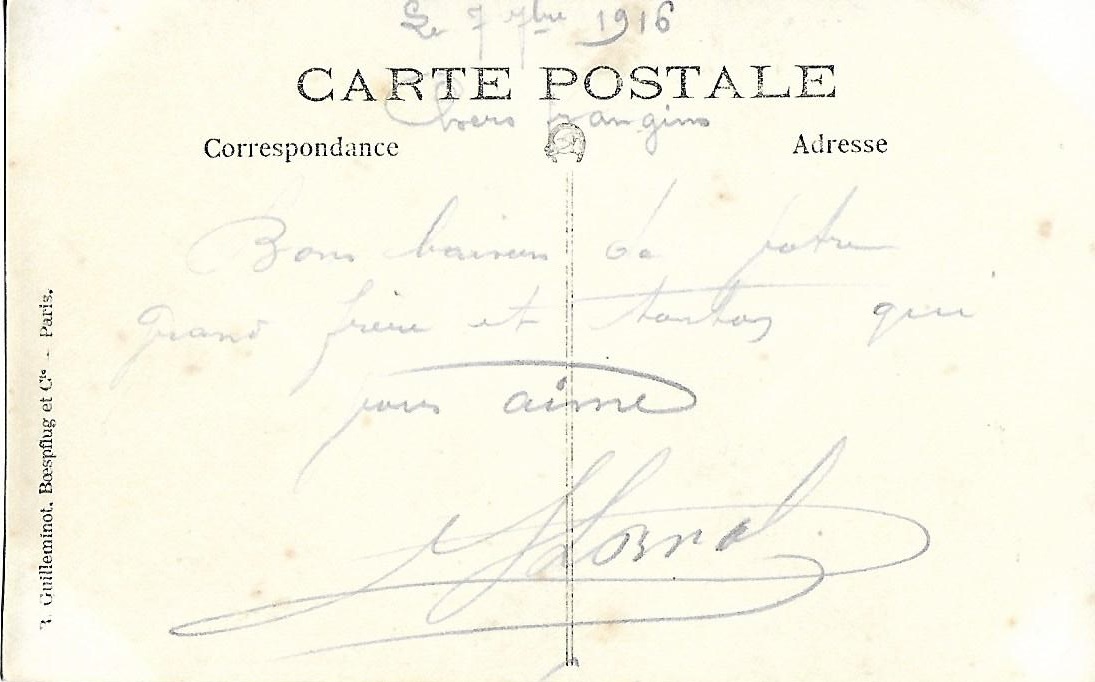 Le 7 7bre 1916
CARTE POSTALE
Chers frangins
Correspondance
Adresse
Bons baisers de votre
grand frère et tonton qui
vous aime
R. Guilleminot, Bœspflug et Cie - Paris.